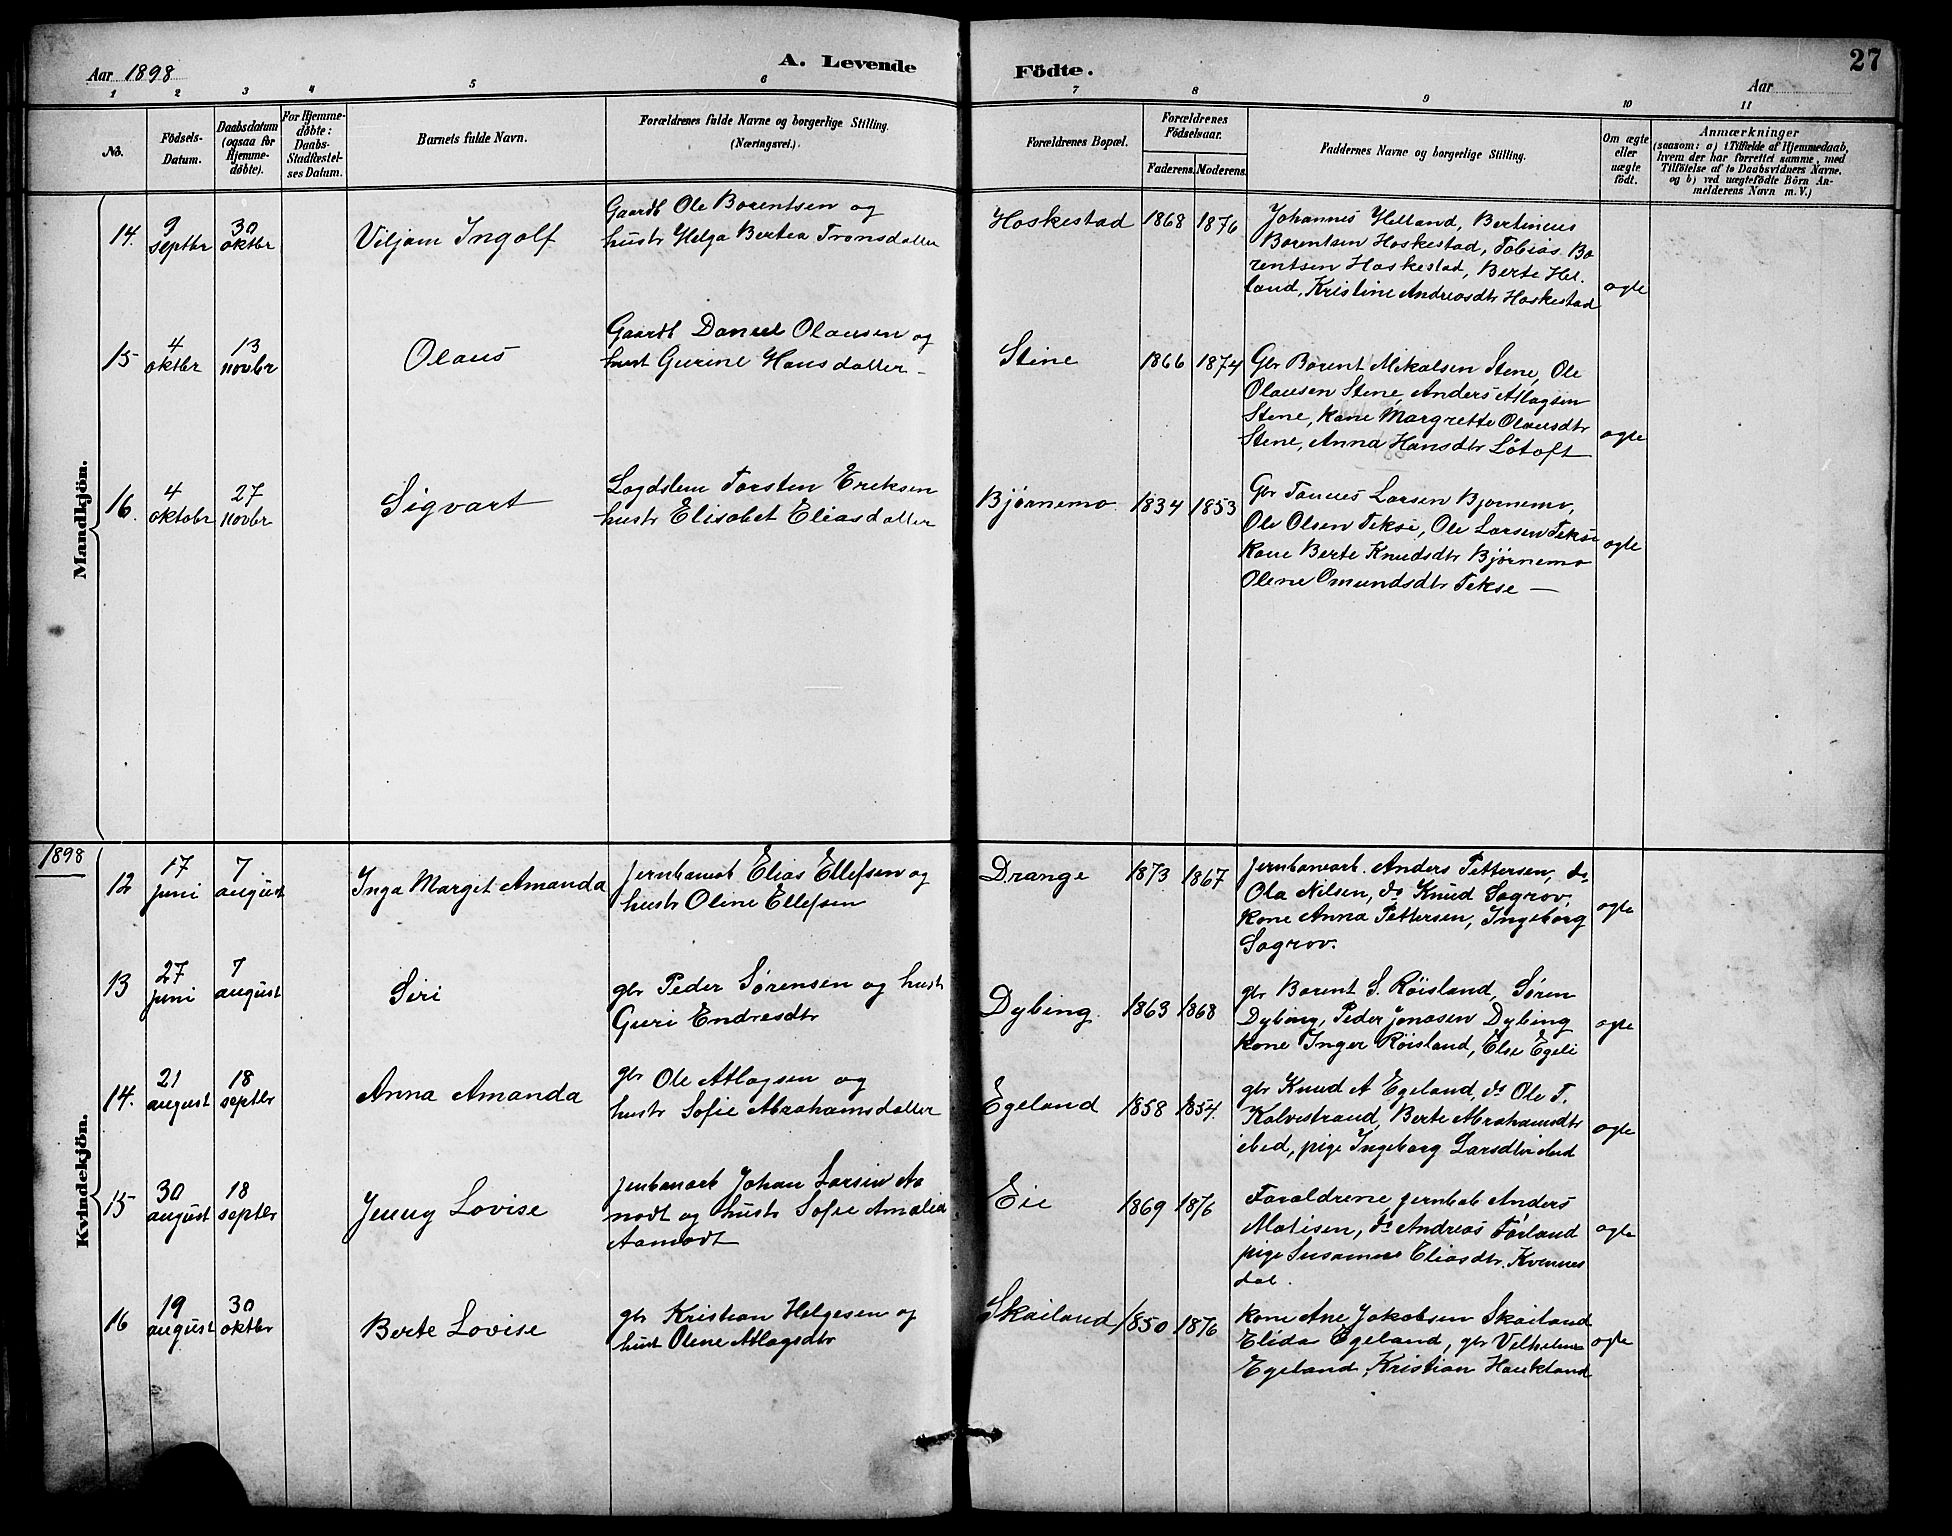 Aar 1898
A. Levende
Födte.
Aar
27
1
2
3
4
5
6
7
8
9
10
11
No.
Födsels-
Datum.
Daabsdatum
(ogsaa for
Hjemme-
døbte).
For Hjemme-
døbte:
Daabs-
Stadfæstel-
ses Datum.
Barnets fulde Navn.
Forældrenes fulde Navne og borgerlige Stilling.
(Næringsvei.)
Forældrenes Bopæl.
Forældrenes
Födselsaar.
Faderens.
Moderens.
Faddernes Navne og borgerlige Stilling.
Om ægte
eller
uægte
født.
Anmærkninger
(saasom: a) i Tilfælde af Hjemmedaab,
hvem der har forrettet samme, med
Tilföielse af to Daabsvidners Navne,
og b) ved uægtefödte Börn An-
melderens Navn m. V.)
Mandkjön.
14.
9
septbr
30
oktbr
Viljam Ingolf
Gaardb Ole Borentsen og
hustr Helga Bertea Tronsdatter
Hoskestad
1868
1876
Johannes Helland, Bertineus
Borentsen Hoskestad, Tobias Bo
rentsen Hoskestad, Berte Hel.
land, Kristine Andreasdtr Hoskestad
ægte
15
4
oktbr
13
novbr
Olaus
Gaardb Daniel Olausen og
hust Gurine Hansdatter
Stene
1866
1874
Gbr Borent Mikalsen Stene, Ole
Olausen Stene, Anders Atlagsen
Stene, kone Margrette Olausdtr
Stene, Anna Hansdtr Løtoft
ægte
16.
4
oktobr
27
novbr
Sigvart
Lægdslem Torsten Eriksen
hustr Elisabet Eliasdatter
Bjørnemo
1834
1853
Gbr Tønnes Larsen Bjørnemo,
Ole Olsen Tekse, Ole Larsen Tekse
kone Berte Knudsdtr Bjørnemo
Olene Omundsdtr Tekse —
ægte
1898
Kvindekjön.
12
17
juni
7
august
Inga Marget Amanda
jernbanearb Elias Ellefsen og
hustr Oline Ellefsen
Drange
1873
1867
jernbanearb. Anders Pettersen, do
Ola Nilsen, do Knud Sagrov,
kone Anna Pettersen, Ingeborg
Sagrov.
ægte
13
27
juni
7
august
Siri
gbr Peder Sørensen og hustr
Guri Endresdtr
Dybing.
1863
1868
gbr Borent S. Røisland, Søren
Dybing, Peder Jonasen Dybing
kone Inger Røisland, Else Egeli
ægte
14.
21
august
18
septbr
Anna Amanda
gbr Ole Atlagsen og
hustr Sofie Abrahamsdatter
Egeland
1858
1854.
gbr Knud A Egeland, do Ole T.
Kalvestrand, Berte Abrahamsdtr
ibid, pige Ingeborg Larsdtr ibid
ægte
15
30
august
18
septbr
Jenny Lovise
jenbanarb Johan Larsen Aa
modt og hustr Sofie Amalia
Aamodt
Eie
1869
1876
Forældrene, jernbab Anders
Matisen, do Andreas Førland
pige Susanne Eliasdtr. Kvennes
dal.
ægte
16
19
august
30
oktbr
Berte Lovise
gbr Kristian Helgesen og
hust Olene Atlagsdtr
Skailand
1850
1876
kone Ane Jakobsen Skailand
Elida Egeland, gbr Vilhelm
Egeland, Kristian Haukland
ægte